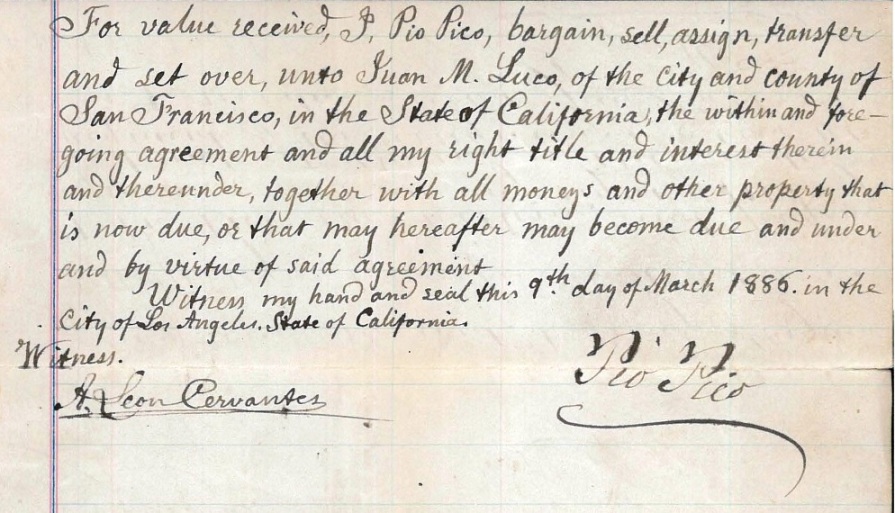 For value received, I, Pio Pico, bargain, sell, assign, transfer
and set over, unto Juan M. Luco, of the city and county of
San Francisco, in the State of California, the within and fore-
going agreement and all my right title and interest therein
and thereunder, together with all moneys and other property that
is now due, or that may hereafter may become due and under
and by virtue of said agreement
Witness my hand and seal this 9th. day of March 1886. in the
City of Los Angeles. State of California.
Witness.
A. Leon Cervantes
Pio Pico